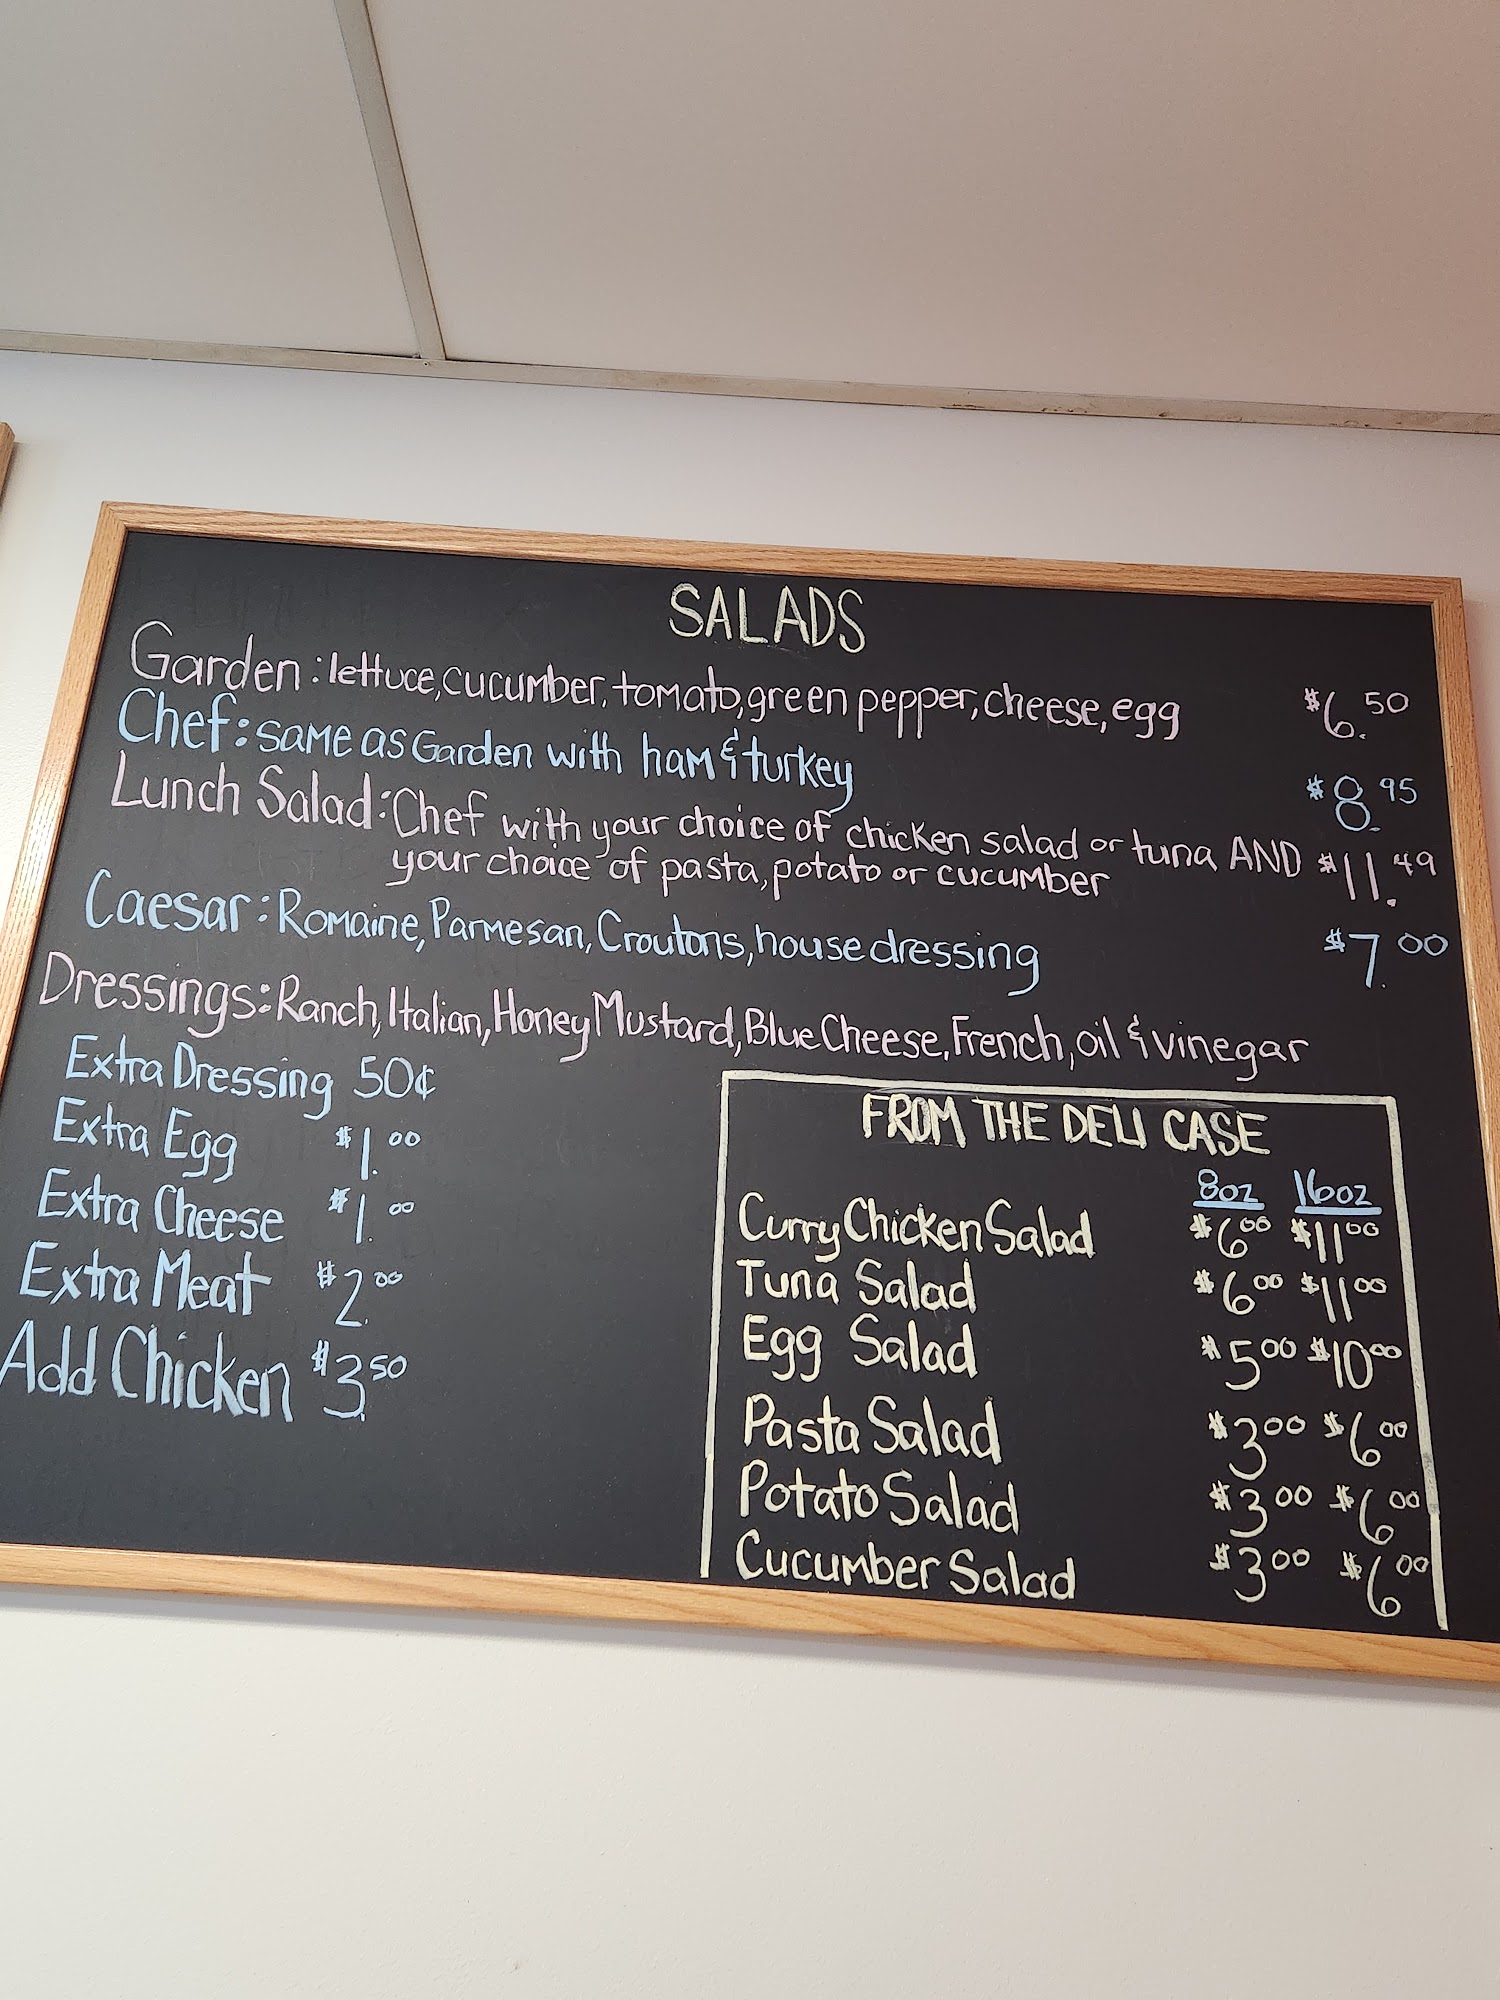 SALADS
Garden: lettuce, cucumber, tomato, green pepper, cheese, egg $6.50
Chef: same as Garden with ham & turkey $8.95
Lunch Salad: Chef with your choice of chicken salad or tuna AND $11.49
your choice of pasta, potato or cucumber
Caesar: Romaine, Parmesan, Croutons, house dressing $7.00
Dressings: Ranch, Italian, Honey Mustard, Blue Cheese, French, oil & vinegar
Extra Dressing 50¢
Extra Egg $1.00
Extra Cheese $1.00
Extra Meat $2.00
Add Chicken $3.50
FROM THE DELI CASE
8oz 16oz
Curry Chicken Salad $6.00 $11.00
Tuna Salad $6.00 $11.00
Egg Salad $5.00 $10.00
Pasta Salad $3.00 $6.00
Potato Salad $3.00 $6.00
Cucumber Salad $3.00 $6.00